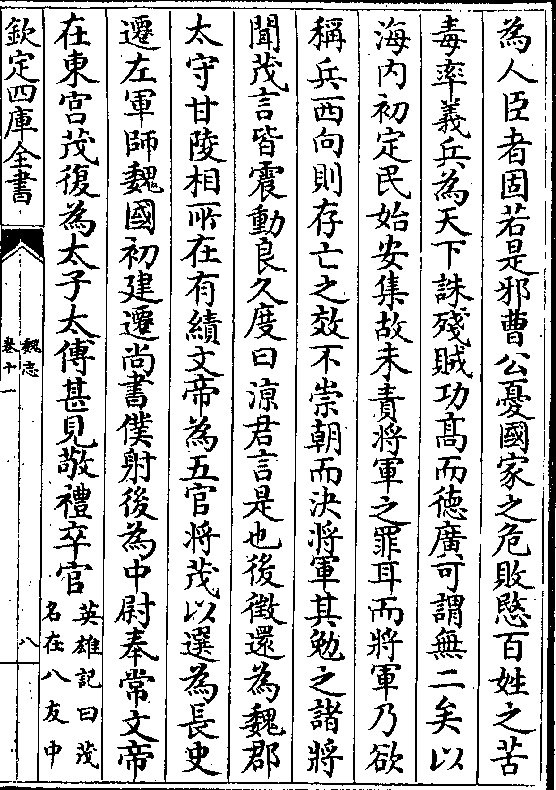 為人臣者固若是邪曹公憂國家之危敗愍百姓之苦
毒率義兵為天下誅殘賊功髙而徳廣可謂無二矣以
海内初定民始安集故未責將軍之罪耳而將軍乃欲
稱兵西向則存亡之效不崇朝而決將軍其勉之諸將
聞茂言皆震動良久度曰涼君言是也後徵還為魏郡
太守甘陵相所在有績文帝為五官將茂以選為長史
遷左軍師魏國初建遷尚書僕射後為中尉奉常文帝
在東宫茂復為太子太傅甚見敬禮卒官
英雄記曰茂
名在八友中
欽定四庫全書
魏志
卷十一
八